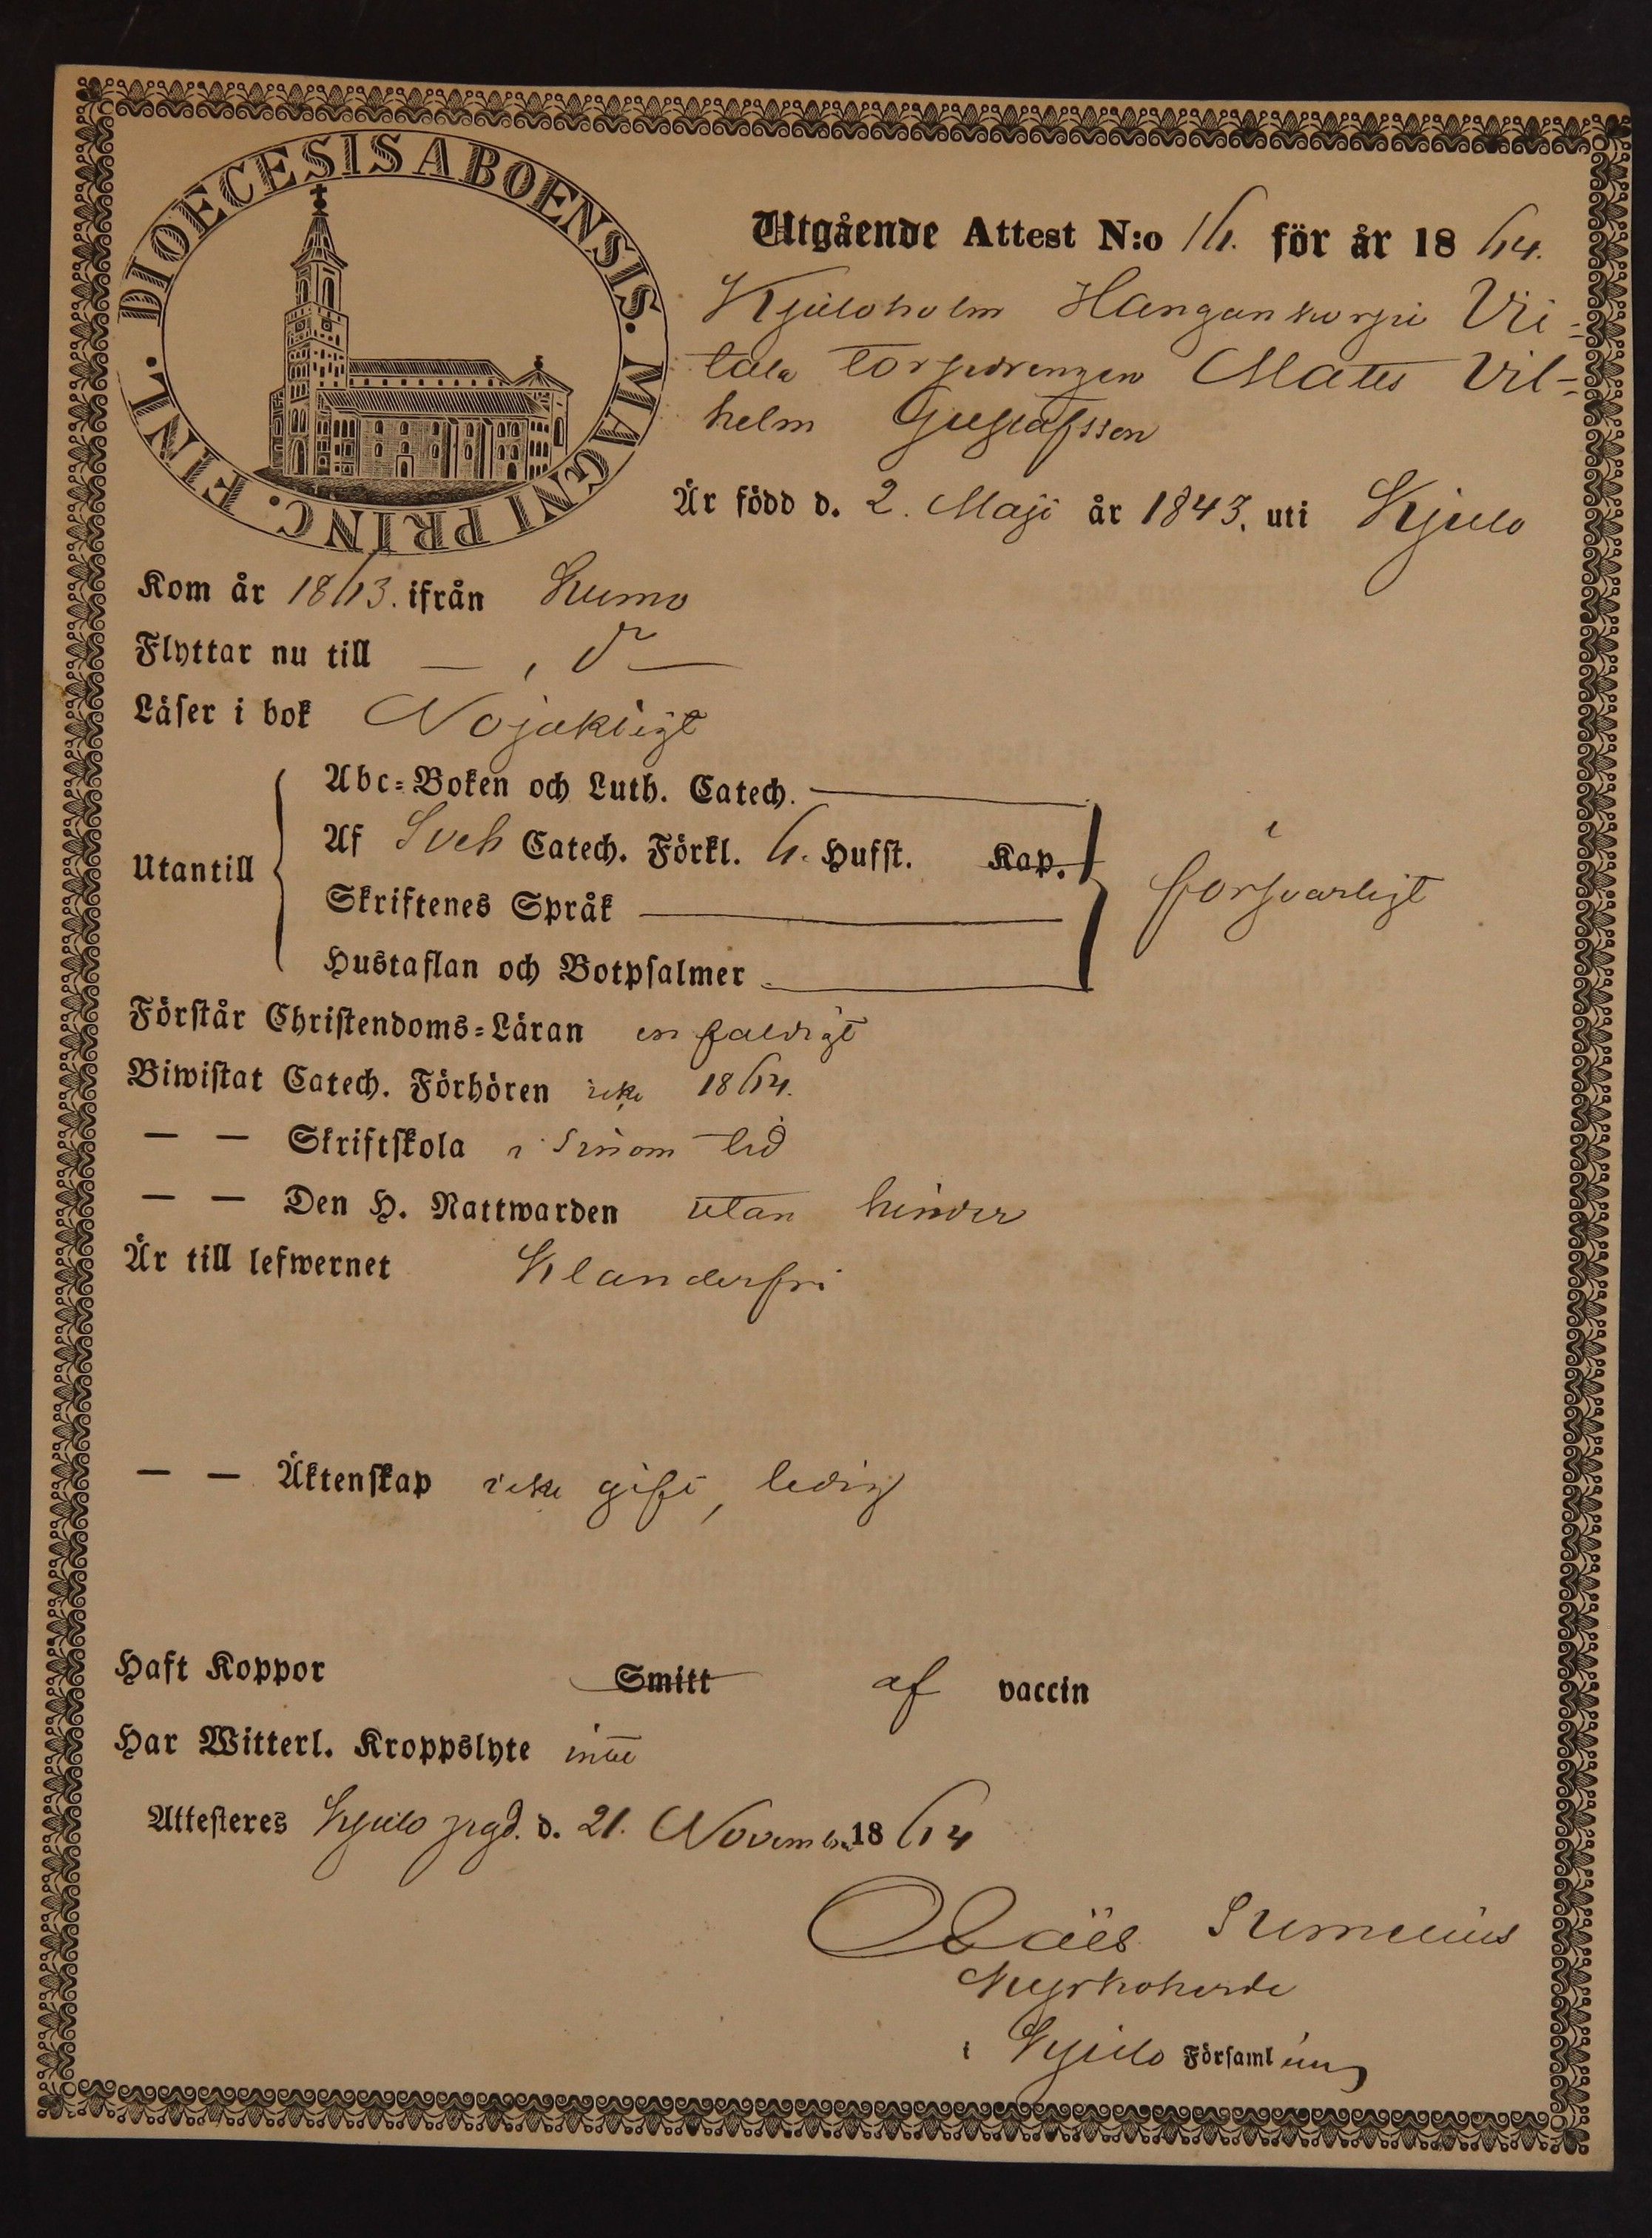 DIOECESIS ABOENSIS. MAGNI PRINC. FINL.
Utgående Attest N:o 16. för år 18 64.
Kjuloholm Hangankorpi Vii-
tala torpdrengen Mats Vil-
helm Gustafsson
Är född d. 2. Maji år 1843. uti Kjulo
Kom år 1863. ifrån Kumo
Flyttar nu till — , d:o —
Läser i bok Nöjaktigt
Utantill
Abc-Boken och Luth. Catech.
Af Sveb Catech. Förkl. 6. Hufst. Kap.
försvarligt
Skriftenes Språk
Hustaflan och Botpsalmer
Förstår Christendoms-Läran enfaldigt
Biwistat Catech. Förhören icke 1864.
— — Skriftskola i sinom tid
— — Den H. Nattwarden utan hinder
Är till lefwernet Klanderfri
— — Äktenskap icke gift, ledig
Haft Koppor Smitt af vaccin
Har Witterl. Kroppslyte intet
Attesteres Kjulo prgd. d. 21. Novemb. 18 64
Sumelius
Kyrkoherde
i Kjulo Församling